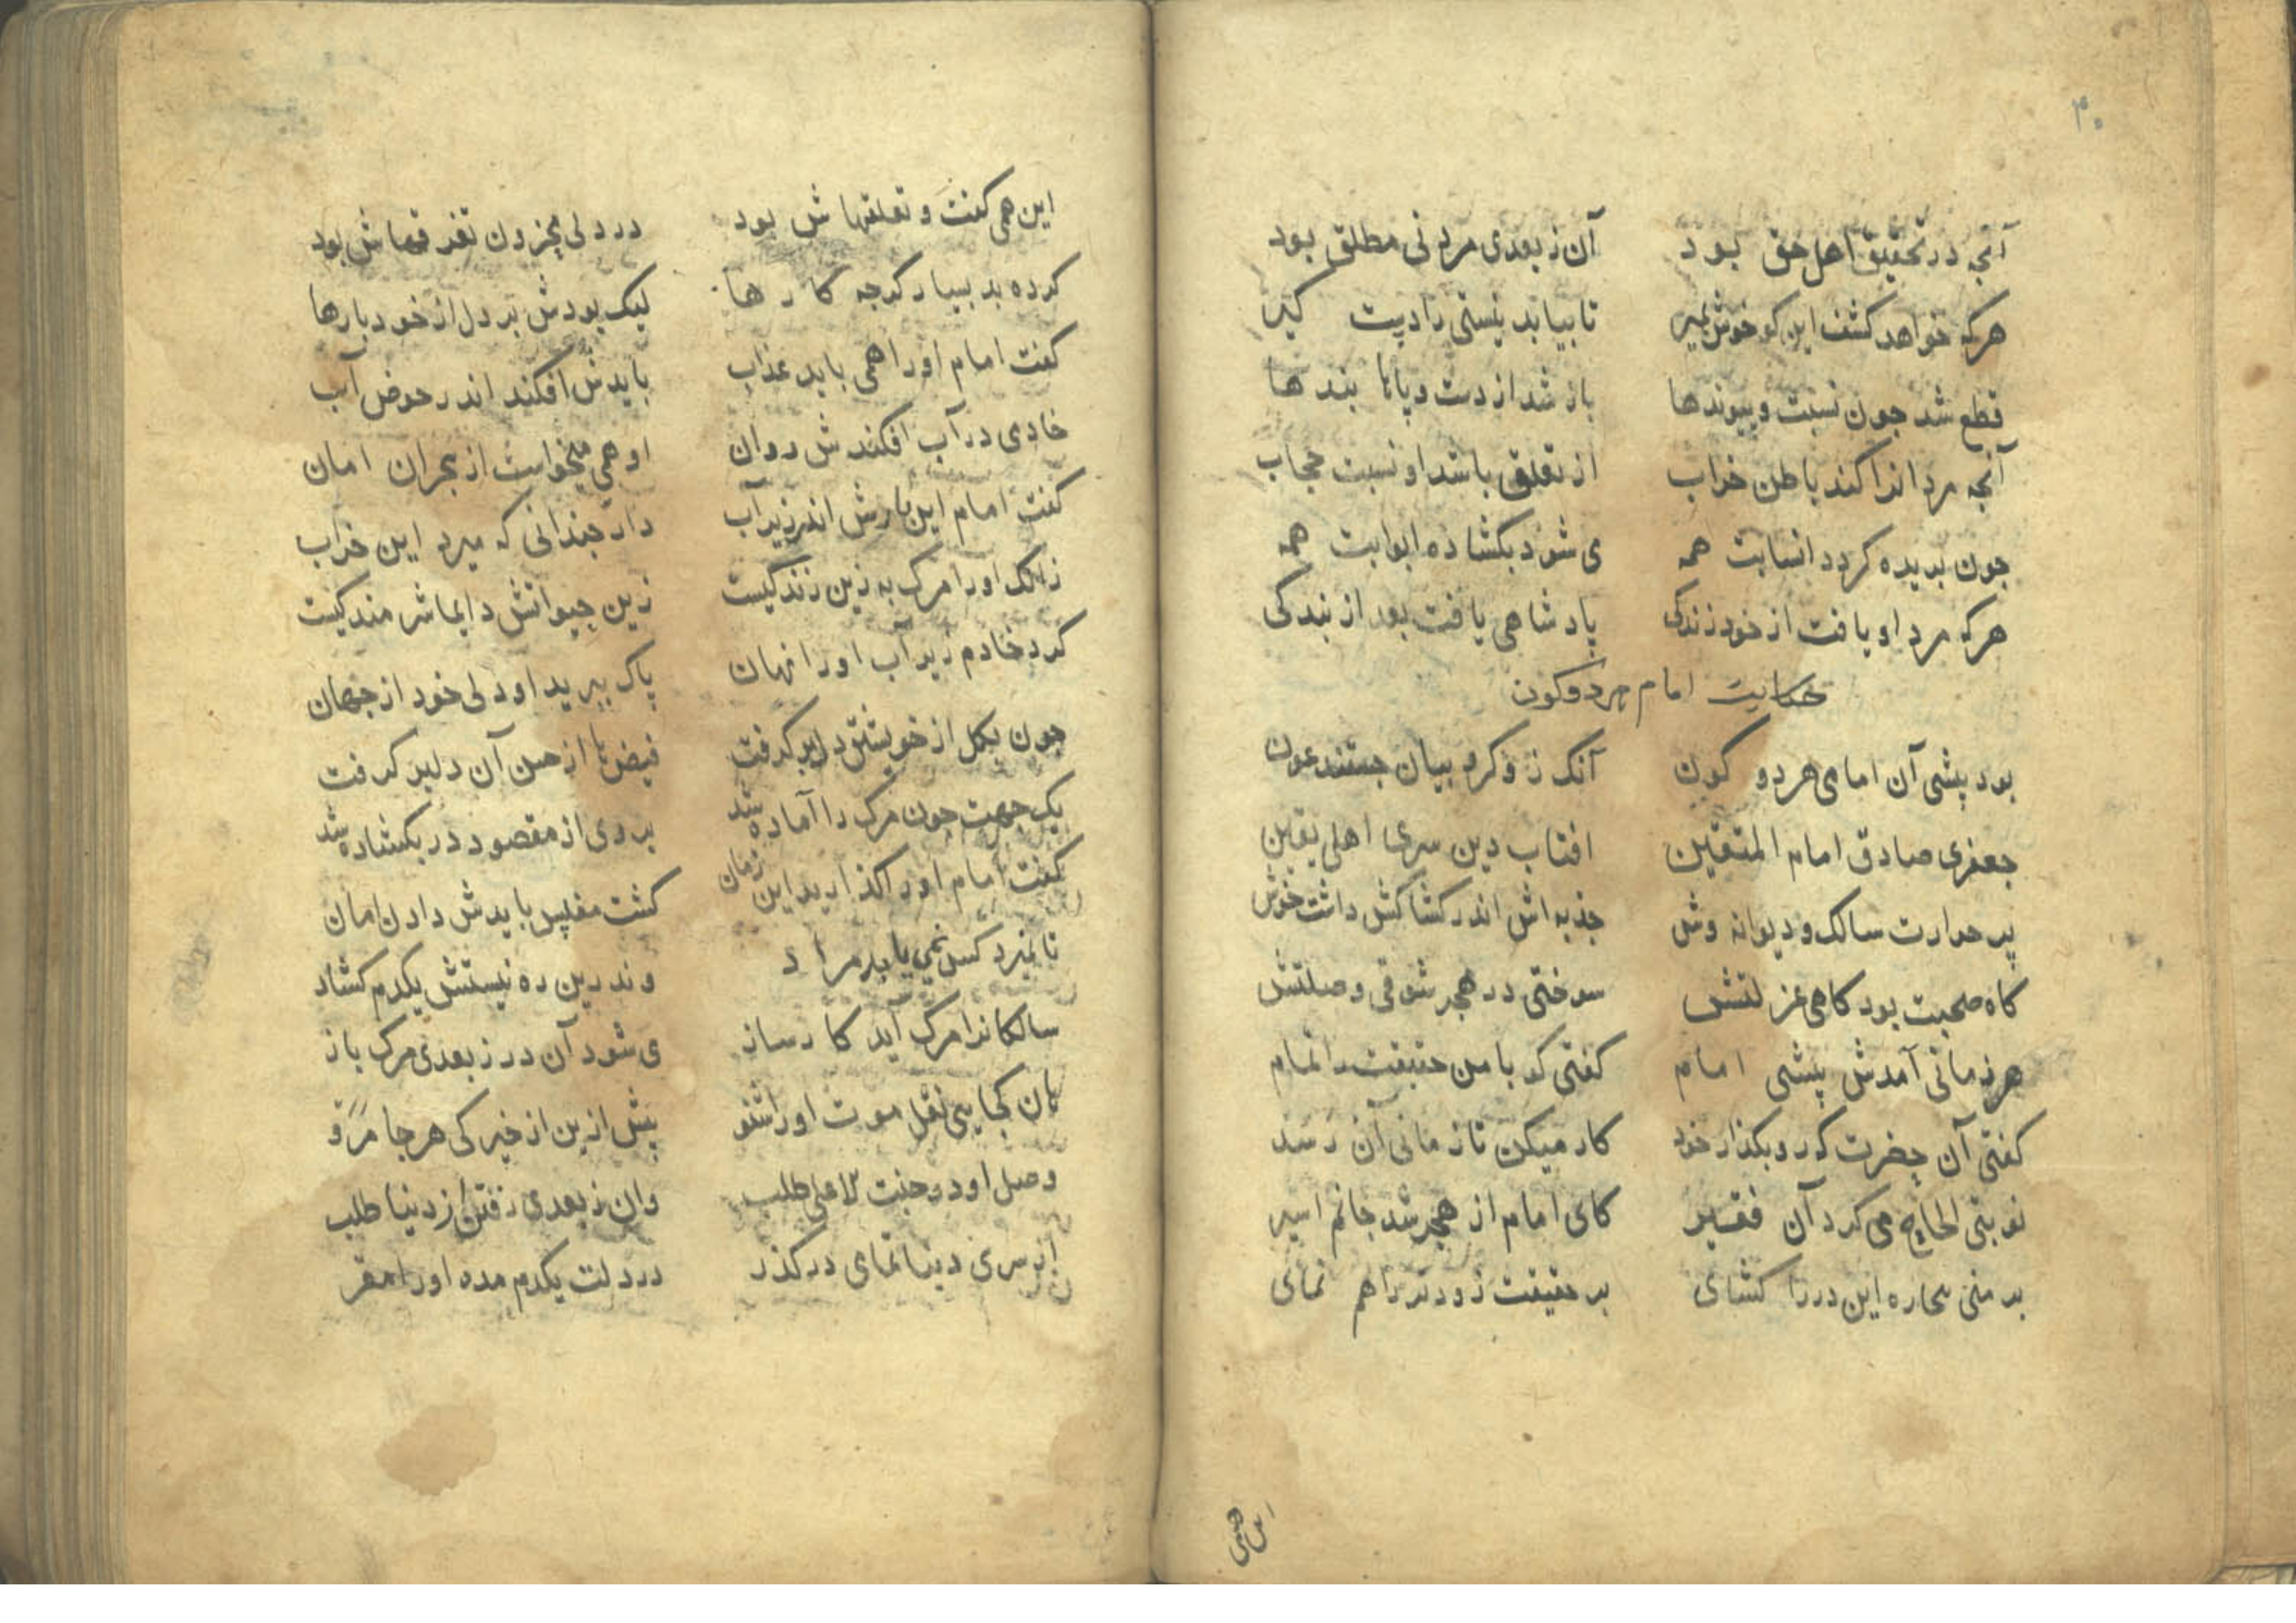 ۴۰
آنجه در تحقیق اهل حق بود آن ز بعدی مردنی مطلق بود
هرکه خواهد کشف این کو خوش بمیر تا بیابد نیستی را دست کیر
قطع شد جون نسبت و پیوندها باز شد از دست و پا بندها
آنجه مردانرا کند باطن خراب از تعلق باشد او نسبت حجاب
جون بریده کردد انسابت همه می شود بکشاده ابوابت همه
هرکه مرد او یافت از خود زندکی پادشاهی یافت بعد از بندکی
حکایت امام هر دو کون
بود پیشی آن امامی هر دو کون آنک ز و کرو بیان جستند عون
جعفری صادق امام المتقین افتاب دین سری اهلی یقین
پر حرارت سالک و دیوانه وش جذبه اش اندر کشاکش داشت خوش
کاه صحبت بود کاهی عزلتش سوختی در هجر شوقی وصلتش
هر زمانی آمدش پیشی امام کفتی کو با من حقیقت را تمام
کفتی آن حضرت که رو بکذار خود کار میکن تا زمانی آن رسد
نوبتی الحاح می کرد آن فقیر کای امام از هجر شد جانم اسیر
بر منی بیچاره این در را کشای بر حقیقت زودتر راهم نمای
این همی
این همی کفت و تعلقهاش بود در دلی محزون تفرقهاش بود
کرده بد بسیار کرجه کارها لیک بودش بر دل از خود بارها
کفت امام او را همی باید عذاب بایدش افکند اندر حوض آب
خادمی در آب افکندش روان او همی میخواست از بحران امان
کفت امام این بارش اندر زیر آب دار جندانی که میرد این خراب
زانک او را مرک به زین زندکیست زین حیواتش دایما شرمندکیست
کرد خادم زیر آب او را نهان پاک ببرید او دلی خود از جهان
جون بکل از خویشتن دل بر کرفت فیض ها از حسن آن دلبر کرفت
یک جهت جون مرک را آماده شد بر وی از مقصود در بکشاده شد
کفت امام او را کذارید این زمان کشت مفلس بایدش دادن امان
تا نمیرد کس نمی یابد مراد وندرین ره نیستش یکدم کشاد
سالکانرا مرک آید کارساز می شود آن در ز بعدی مرک باز
هان کجایی نقل موت او را شنو پیش ازین از خیرکی هر جا مرو
وصل او در جنت الاعلی طلب وان ز بعدی رفتن از دنیا طلب
از سری دنیا تمامی درکذر در دلت یکدم مده او را مقر